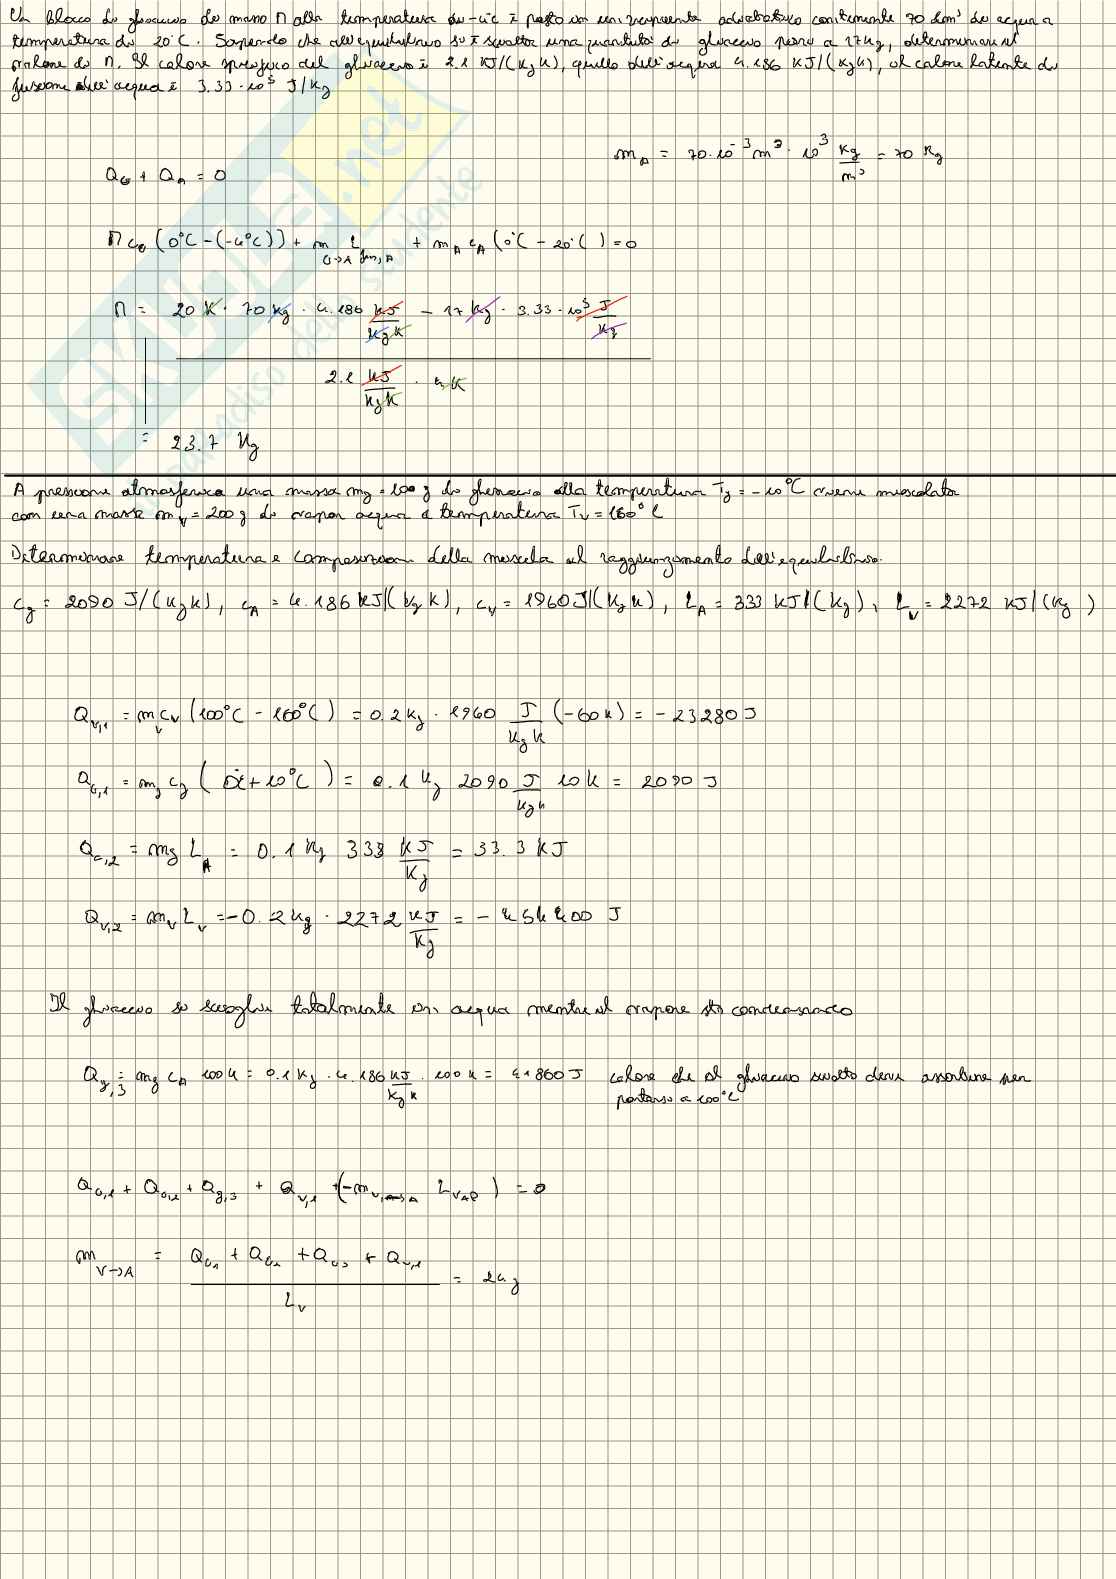 Un blocco di ghiaccio di massa M alla temperatura di -4°C è posto in un recipiente adiabatico contenente 70 dm³ di acqua a
temperatura di 20°C. Sapendo che all'equilibrio si è sciolta una quantità di ghiaccio pari a 17 kg, determinare il
valore di M. Il calore specifico del ghiaccio è 2.1 KJ/(Kg K), quello dell'acqua 4.186 KJ/(Kg K), il calore latente di
fusione dell'acqua è 3.33·10⁵ J/Kg
m_A = 70·10⁻³ m³ · 10³ Kg/m³ = 70 Kg
Q_G + Q_A = 0
M c_G (0°C-(-4°C)) + m_G→A L_fus,A + m_A c_A (0°C - 20°C) = 0
M = (20 K · 70 Kg · 4.186 KJ/(Kg K) - 17 Kg · 3.33·10⁵ J/Kg) / (2.1 KJ/(Kg K) · 4K)
= 23.7 Kg
A pressione atmosferica una massa mg = 100 g di ghiaccio alla temperatura Tg = -10°C viene mescolata
con una massa m_V = 200 g di vapor acqueo a temperatura T_V = 160°C
Determinare temperatura e composizione della miscela al raggiungimento dell'equilibrio.
cg = 2090 J/(Kg K), c_A = 4.186 KJ/(Kg K), c_V = 1960 J/(Kg K), L_A = 333 KJ/(Kg), L_V = 2272 KJ/(Kg)
Q_V,1 = m_V c_V (100°C - 160°C) = 0.2 Kg · 1960 J/(Kg K) (-60 K) = -23280 J
Q_G,1 = mg cg (0°C + 10°C) = 0.1 Kg 2090 J/(Kg K) 10 K = 2090 J
Q_G,2 = mg L_A = 0.1 Kg 333 KJ/Kg = 33.3 KJ
Q_V,2 = m_V L_V = -0.2 Kg · 2272 KJ/Kg = -454400 J
Il ghiaccio si scioglie totalmente in acqua mentre il vapore sta condensando
Q_g,3 = mg c_A 100 K = 0.1 Kg · 4.186 KJ/(Kg K) · 100 K = 41860 J calore che il ghiaccio sciolto deve assorbire per
portarsi a 100°C
Q_G,1 + Q_G,2 + Q_g,3 + Q_V,1 + (-m_V→A L_VAP) = 0
m_V→A = (Q_G,1 + Q_G,2 + Q_G,3 + Q_V,1) / L_V = 24 g